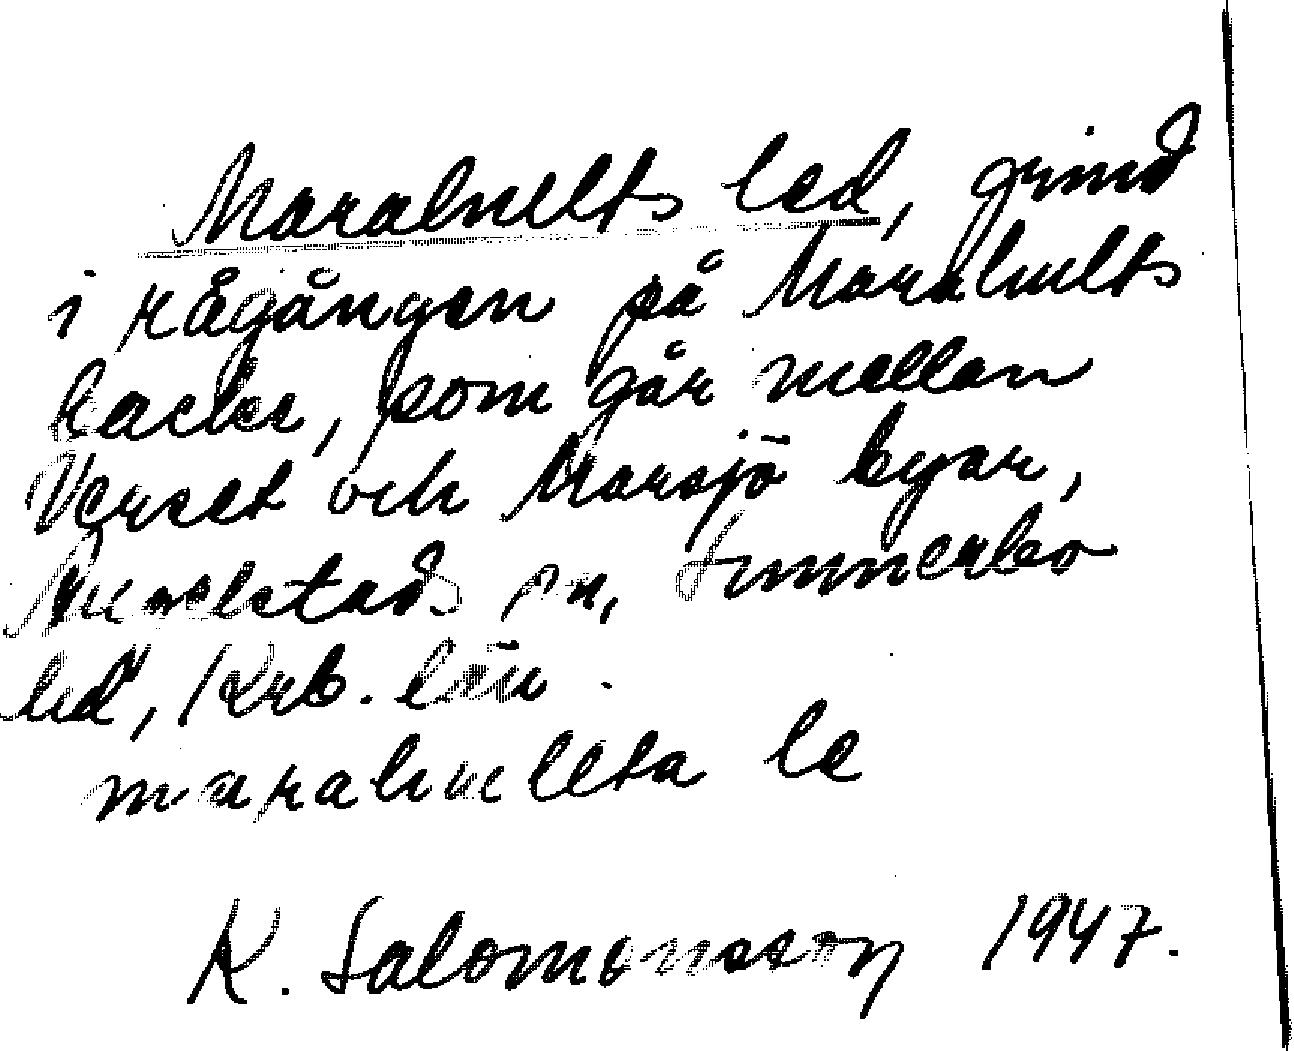 Marahults led, grind
i rågången på Marahults
backe, som går mellan
Verset och Marsjö byar,
Annelstads sn, Sunnerbo
hd, Krb. län.
marahullta le
K. Salomonsson 1947.